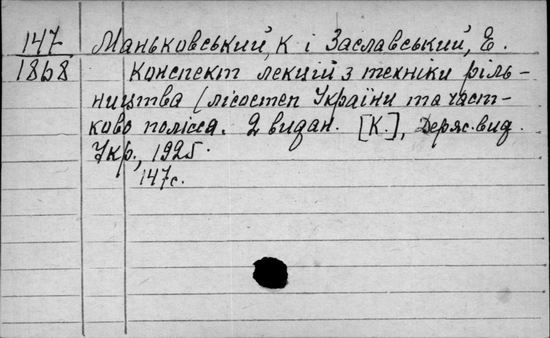 147 Маньковський, К і Заславський, Е.
1868 Конспект лекцій з техніки ріль-
ництва (лісостеп України та част-
ково полісся. 2 видан. [К.], Держ. вид.
Укр., 1925.
147с.